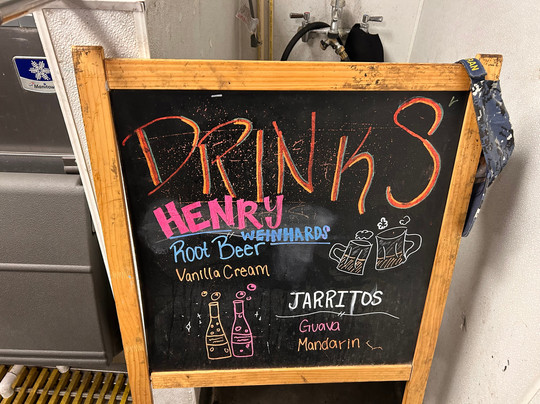 Manitowoc
DRINKS
HENRY
WEINHARDS
Root Beer
Vanilla Cream
JARRITOS
Guava
Mandarin